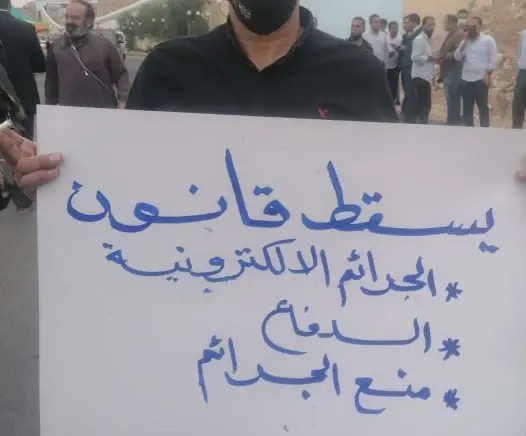 يسقط قانون
* الجرائم الالكترونية
* الدفاع
* منع الجرائم